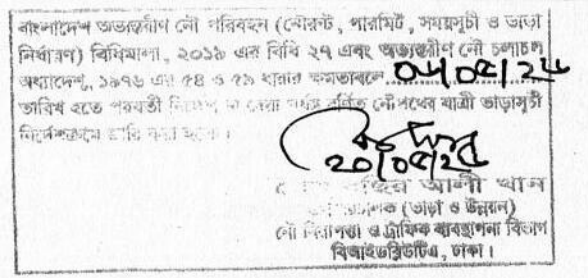 বাংলাদেশ অভ্যন্তরীণ নৌ পরিবহন (নৌরুট, পারমিট, সময়সূচী ও ভাড়া
নির্ধারণ) বিধিমালা, ২০১৯ এর বিধি ২৭ এবং অভ্যন্তরীণ নৌ চলাচল
অধ্যাদেশ, ১৯৭৬ এর ৫৪ ও ৫৯ ধারার ক্ষমতাবলে
তারিখ হতে পরবর্তী নির্দেশ না দেয়া পর্যন্ত বর্ণিত নৌপথের যাত্রী ভাড়াসূচী
নির্দেশক্রমে জারি করা হলো।
আলী খান
(ভাড়া ও উন্নয়ন)
নৌ নিরাপত্তা ও ট্রাফিক ব্যবস্থাপনা বিভাগ
বিআইডব্লিউটিএ, ঢাকা।